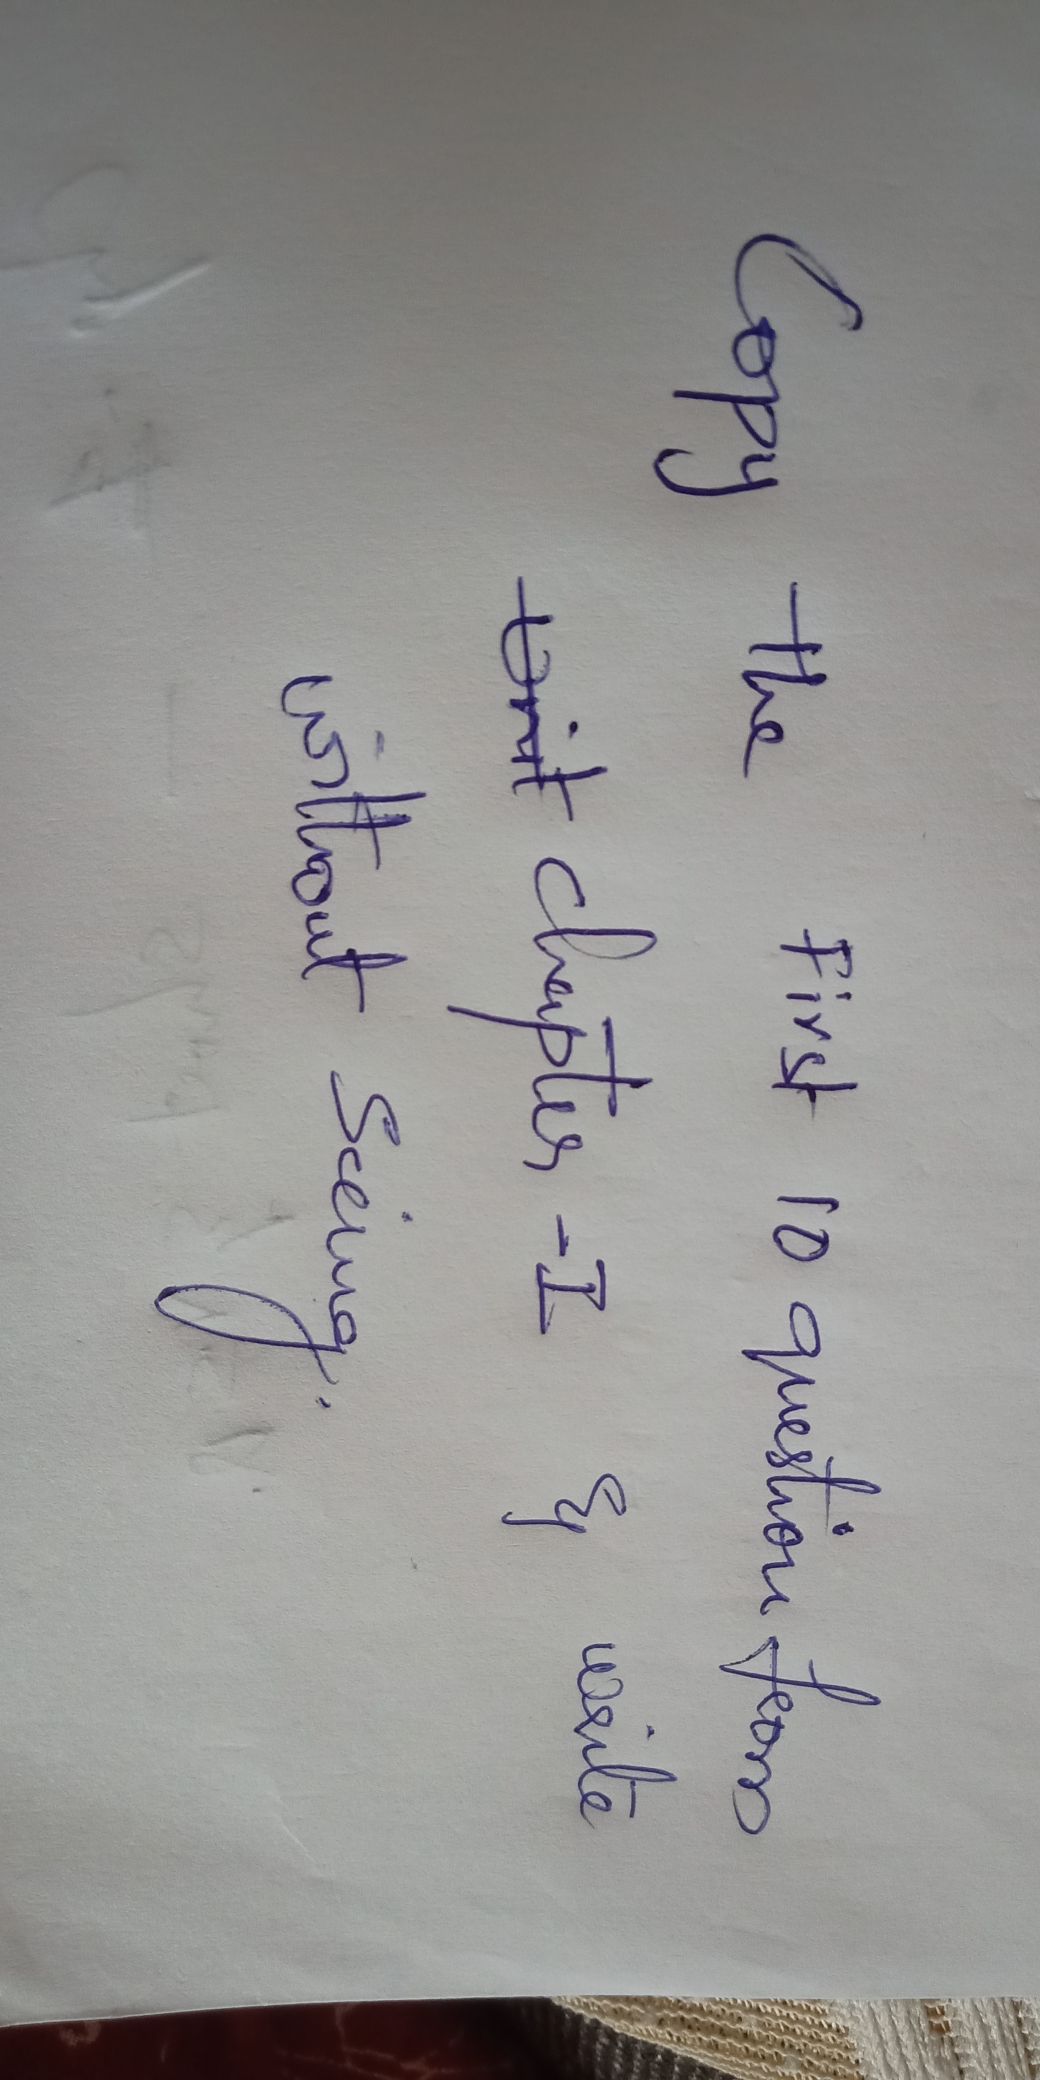 Copy the First 10 question from
Unit chapter - I & write
without Seeing.